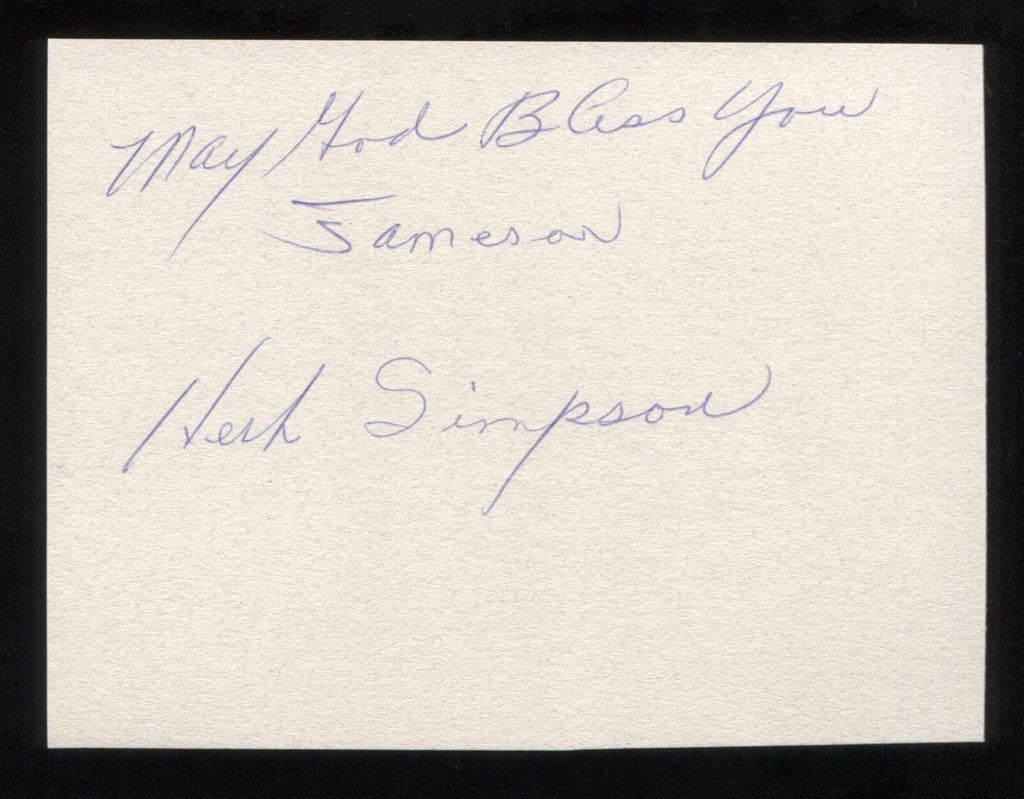 May God Bless You
Jameson
Herb Simpson